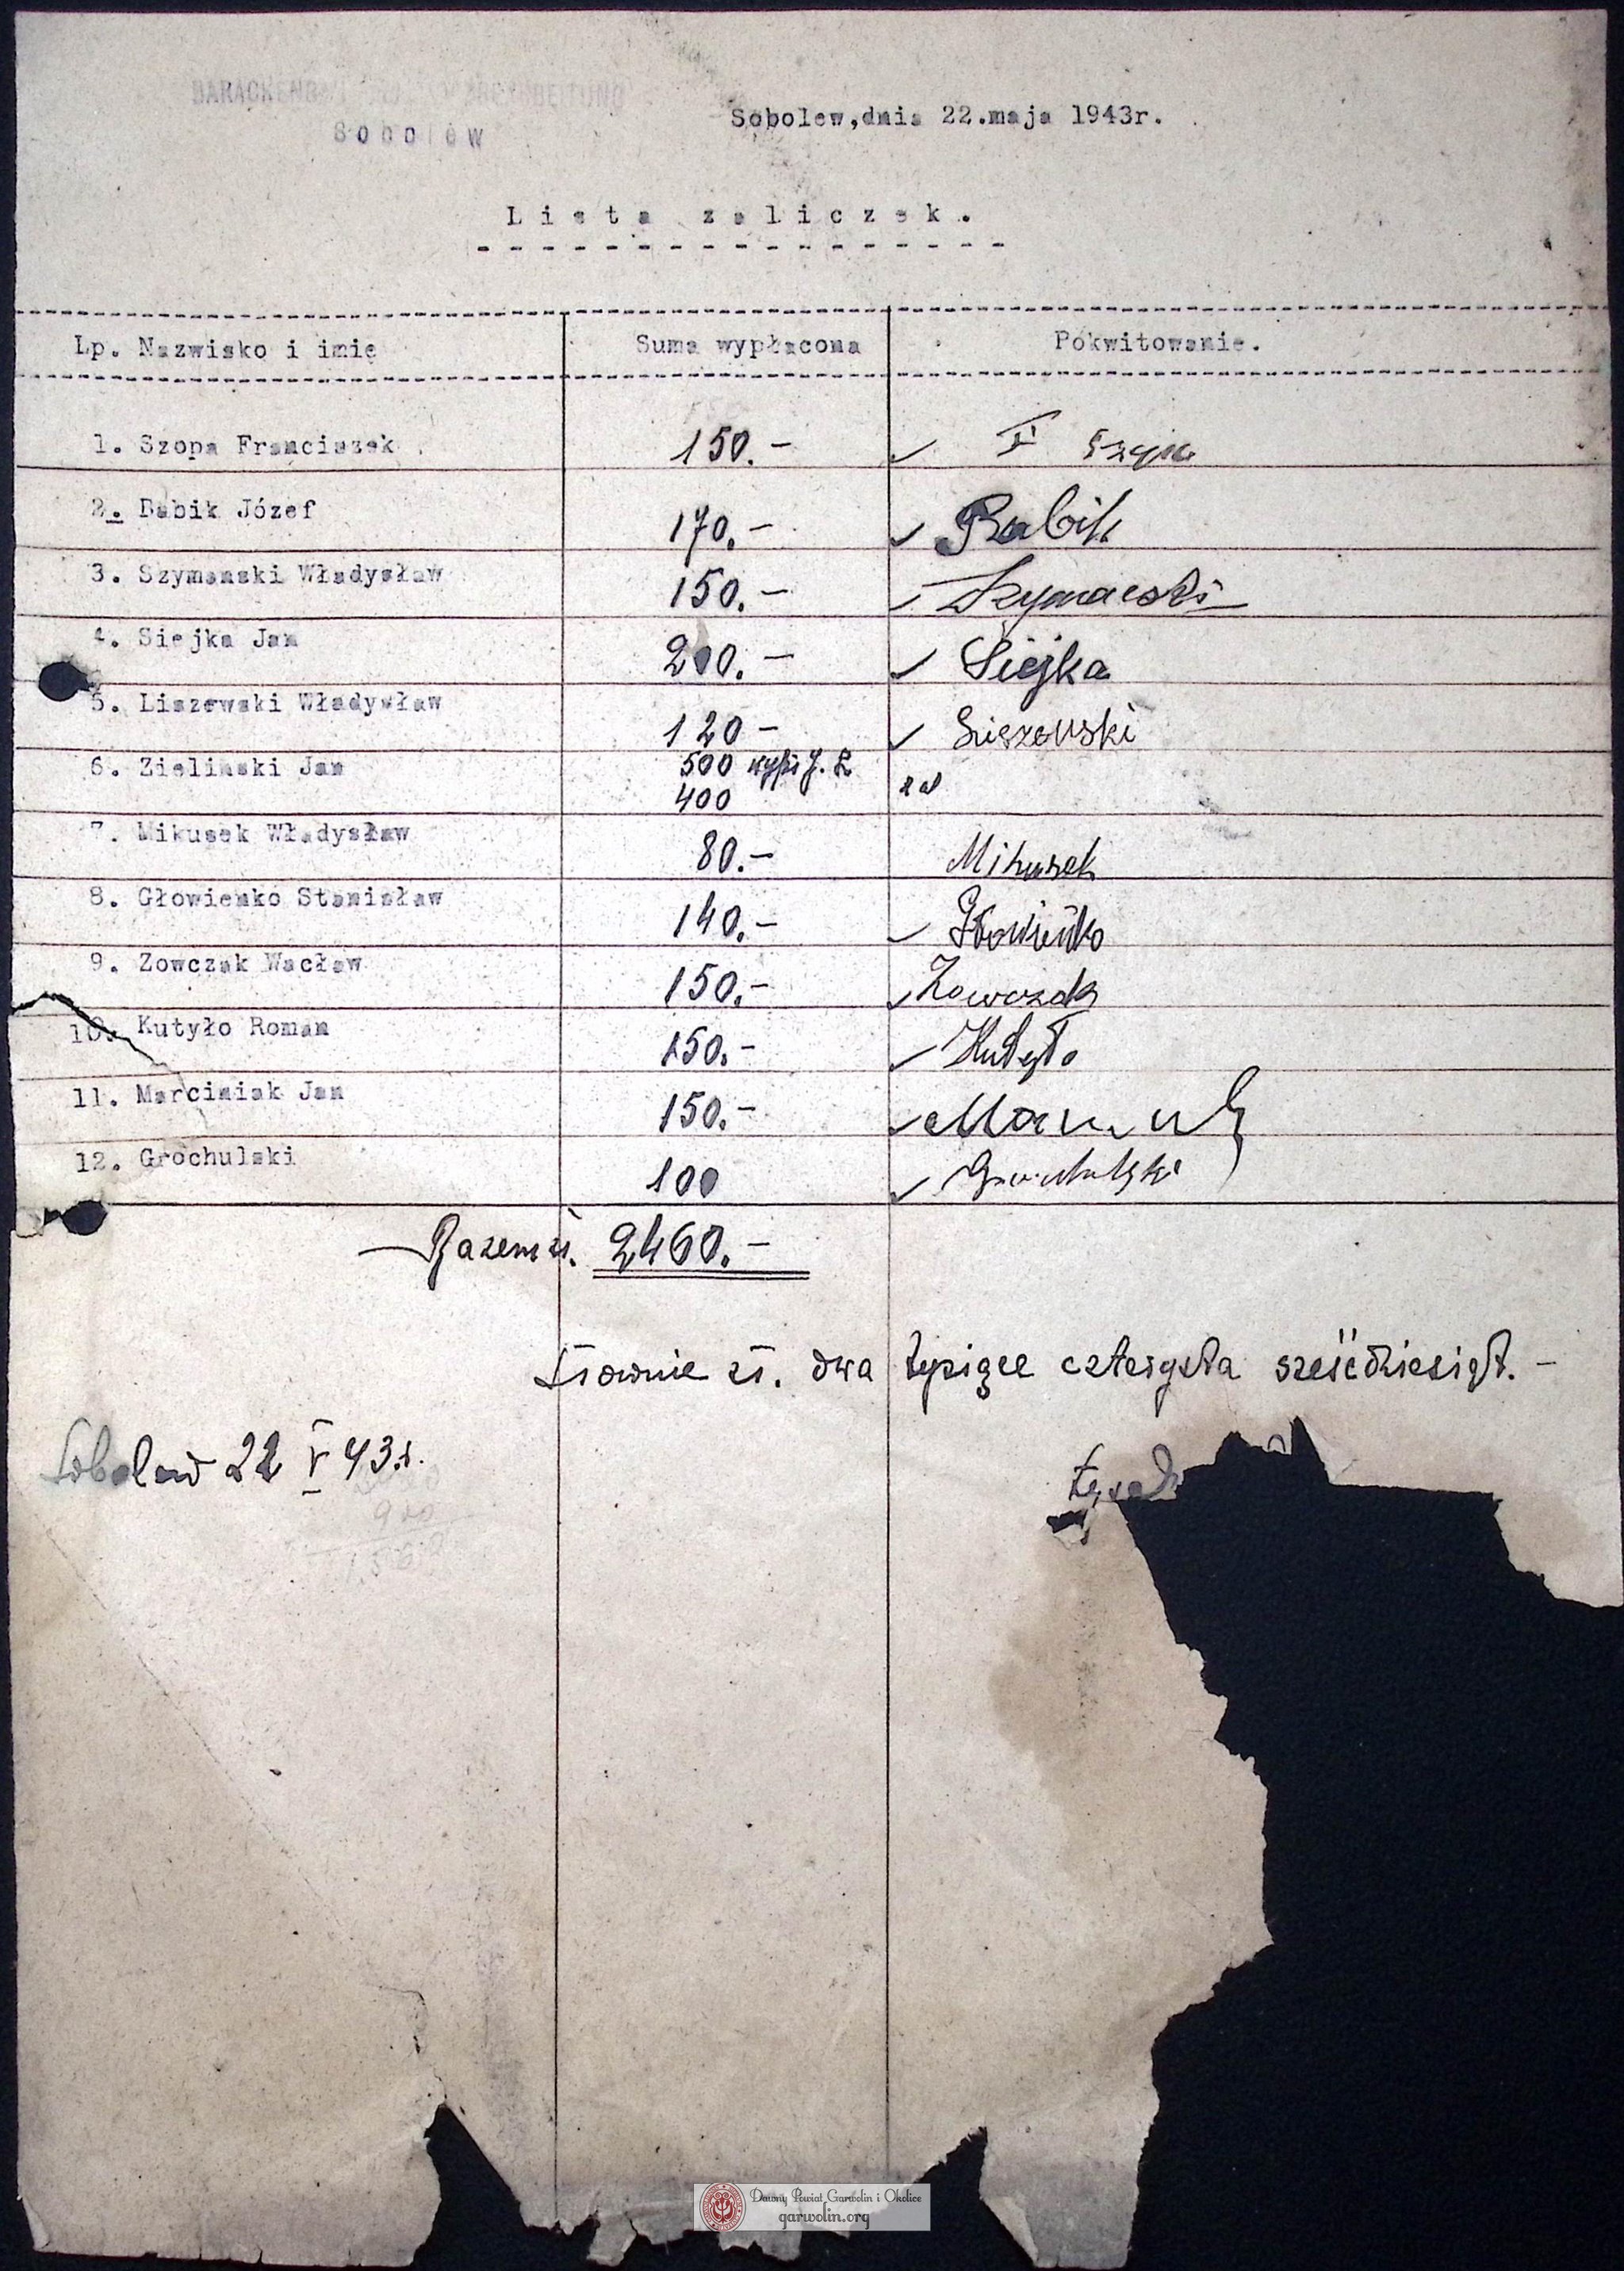 Sobolew
Sobolew,dnia 22.maja 1943r.
Lista zaliczek.
Lp. Nazwisko i imię Suma wypłacona Pokwitowanie.
1. Szopa Franciszek 150.-
2. Babik Józef 170.- Babik
3. Szymanski Władysław 150.- Szymański
4. Siejka Jan 200.- Siejka
5. Liszewski Władysław 120 - Liszewski
6. Zielinski Jan 500
400
7. Mikusek Władysław 80.- Mikusek
8. Głowienko Stanisław 140.- Głowieńko
9. Zowczak Wacław 150.- Zowczak
10. Kutyło Roman 150.- Kutyło
11. Marciniak Jan 150.-
12. Grochulski 100 Grochulski
Razem zł. 2460.-
Słownie zł. dwa tysiące czterysta sześćdziesiąt. -
Sobolew 22 V 43 r.
900
Dawny Powiat Garwolin i Okolice
garwolin.org